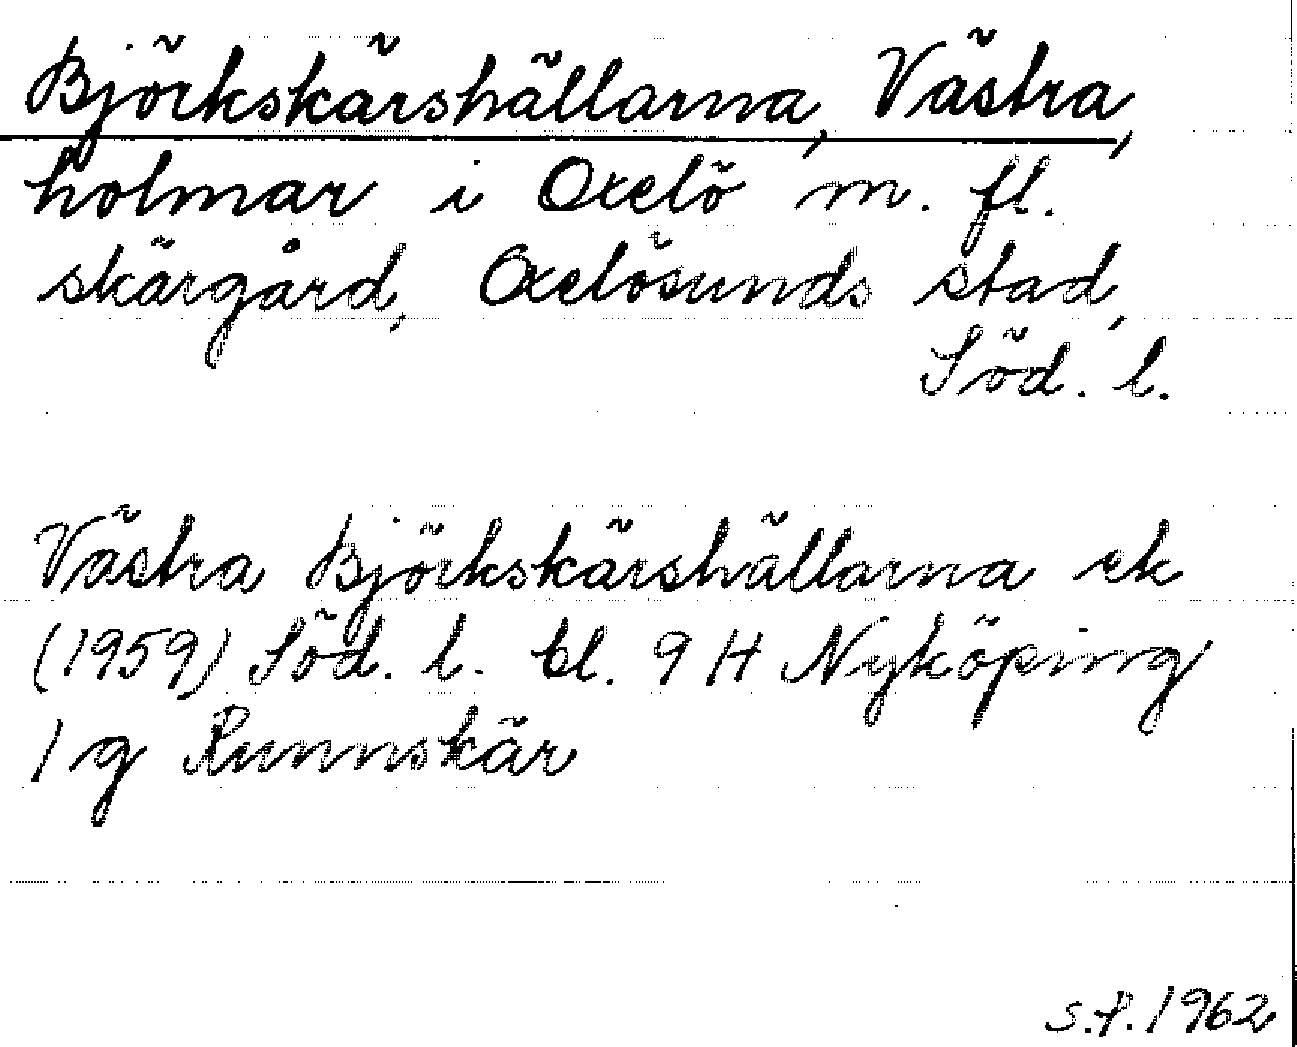 Björkskärshällarna, Västra,
holmar i Oxelö m. fl.
skärgård, Oxelösunds stad,
Söd. l.
Västra Björkskärshällarna ek
(1959) Söd. l. bl. 9 H Nyköping
1 g Runnskär
S.P. 1962